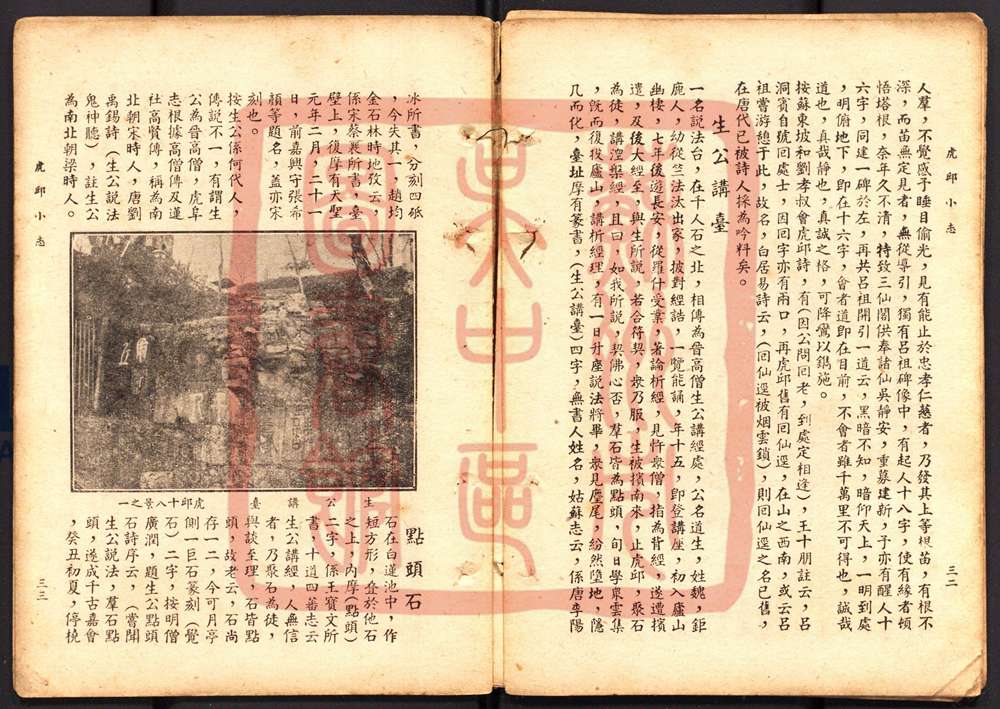 虎邱小志
三二
人羣，不覺感予睡目偷光，見有能止於忠孝仁慈者，乃發其上等根苗，有根不
深，而苗無定見者，無從導引，獨有呂祖碑像中，有起人十八字，使有緣者頓
悟塔根，奈年久不清，特致三仙閣供奉諸仙吳靜安，重募建新，于亦有醒人十
六字，同建一碑於左，再共呂祖開引一道云，黑暗不知，暗仰天上，一明到處
，明俯地下，即在十六字，會者道即在目前，不會者雖千萬里不可得也，誠哉
道也，真哉靜也，真誠之格，可降鸞以鐫施。
按蘇東坡和劉孝叔會虎邱詩，有（因公問回老，到處定相逢），王十朋註云，呂
洞賓自號回處士，因回字亦有兩口，再虎邱舊有回仙逕，在山之西南，或云呂
祖嘗游憩于此，故名，白居易詩云，（回仙逕被烟雲鎖），則回仙逕之名已舊，
在唐代已被詩人採為吟料矣。
生公講臺
一名說法台，在千人石之北，相傳為晉高僧生公講經處，公名道生，姓魏，鉅
鹿人，幼從竺法汰出家，披對經誥，一覽能誦，年十五，即登講座，初入廬山
幽棲，七年後遊長安，從羅什受業，著論析經，見忤衆僧，指為背經，遂遭擯
遣，及後大經至，與生所說，若合符契，衆乃服，生被擯南來，止虎邱，聚石
為徒，講湼槃經，且曰，如我所說，契佛心否，羣石皆為點頭，旬日學衆雲集
，旣而復投廬山，講析經理，有一日升座說法將畢，衆見麈尾，紛然墮地，隱
几而化，臺址摩有篆書，（生公講臺）四字，無書人姓名，姑蘇志云，係唐李陽
冰所書，分刻四砥
，今失其一，趙均
金石林時地攷云，
係宋蔡襄所書，臺
壁上，復摩有天聖
元年二月，二十一
日，前嘉興守張希
顏等題名，蓋亦宋
刻也。
按生公係何代人，
傳說不一，有謂生
公為晉高僧，虎阜
志根據高僧傳及蓮
社高賢傳，稱為南
北朝宋時人，唐劉
禹錫詩（生公說法
鬼神聽），註生公
為南北朝梁時人。
虎邱十八景之一　生公講臺
點頭石
石在白蓮池中，作
短方形，叠於他石
之上，內摩（點頭）
二字，係王寶文所
書，十道四蕃志云
生公講經，人無信
者，乃聚石為徒，
與談至理，石皆點
頭，故老云，石尚
存一二，今可月亭
側一巨石篆刻（覺
石）二字，按明僧
廣潤，題生公點頭
石詩序云，（嘗聞
生公說法，羣石點
頭，遂成千古嘉會
，癸丑初夏，停橈
虎邱小志
三三